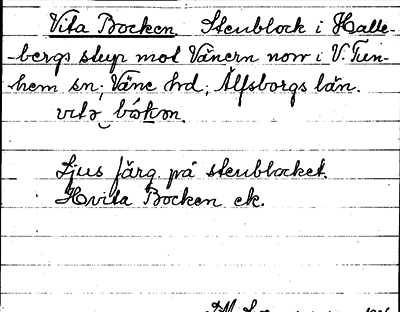 Vita Bocken. Stenblock i Halle-
-bergs stup mot Vänern norr i V. Tun-
hem sn; Väne hd; Älfsborgs län.
vitə bókən.
Ljus färg på stenblocket.
Hvita Bocken ek.